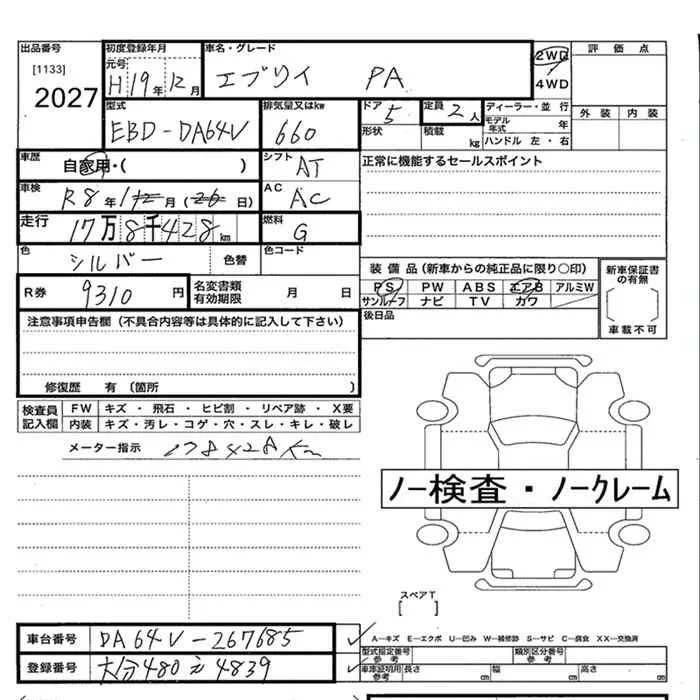 出品番号 初度登録年月 車名・グレード 2WD 評価点
[1133] 元号 H19年 12月 エブリイ PA 4WD
2027
型式 排気量又はkw ドア 5 定員 2人 ディーラー・並行 外装 内装
EBD-DA64V 660 形状 積載 kg モデル年式 年
ハンドル 左・右
車歴 自家用・( ) シフト AT 正常に機能するセールスポイント
車検 R8年 月( 日) AC AC
走行 17万8千428km 燃料 G
色 シルバー 色替 色コード
装備品(新車からの純正品に限り○印) 新車保証書の有無
R券 9310円 名変書類有効期限 月 日 PS PW ABS エアB アルミW
サンルーフ ナビ TV カワ 車載不可
注意事項申告欄(不具合内容等は具体的に記入して下さい) 後日品
修復歴 有(箇所 )
検査員記入欄 FW キズ・飛石・ヒビ割・リペア跡・X要
内装 キズ・汚レ・コゲ・穴・スレ・キレ・破レ
メーター指示 178428Km
ノー検査・ノークレーム
スペアT
[ ]
車台番号 DA64V-267685 A-キズ E-エクボ U-凹み W-補修跡 S-サビ C-腐食 XX-交換済
型式指定番号参考 類別区分番号参考
登録番号 大分480え4839 車庫証明用参考 長さ cm 幅 cm 高さ cm